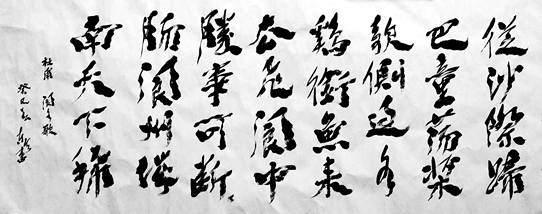 從沙際歸
巴童蕩槳
欹側過水
鷄銜魚來
去飛閬中
勝事可斷
腸閬州城
南天下稀
杜甫 閬水歌
癸巳春 書